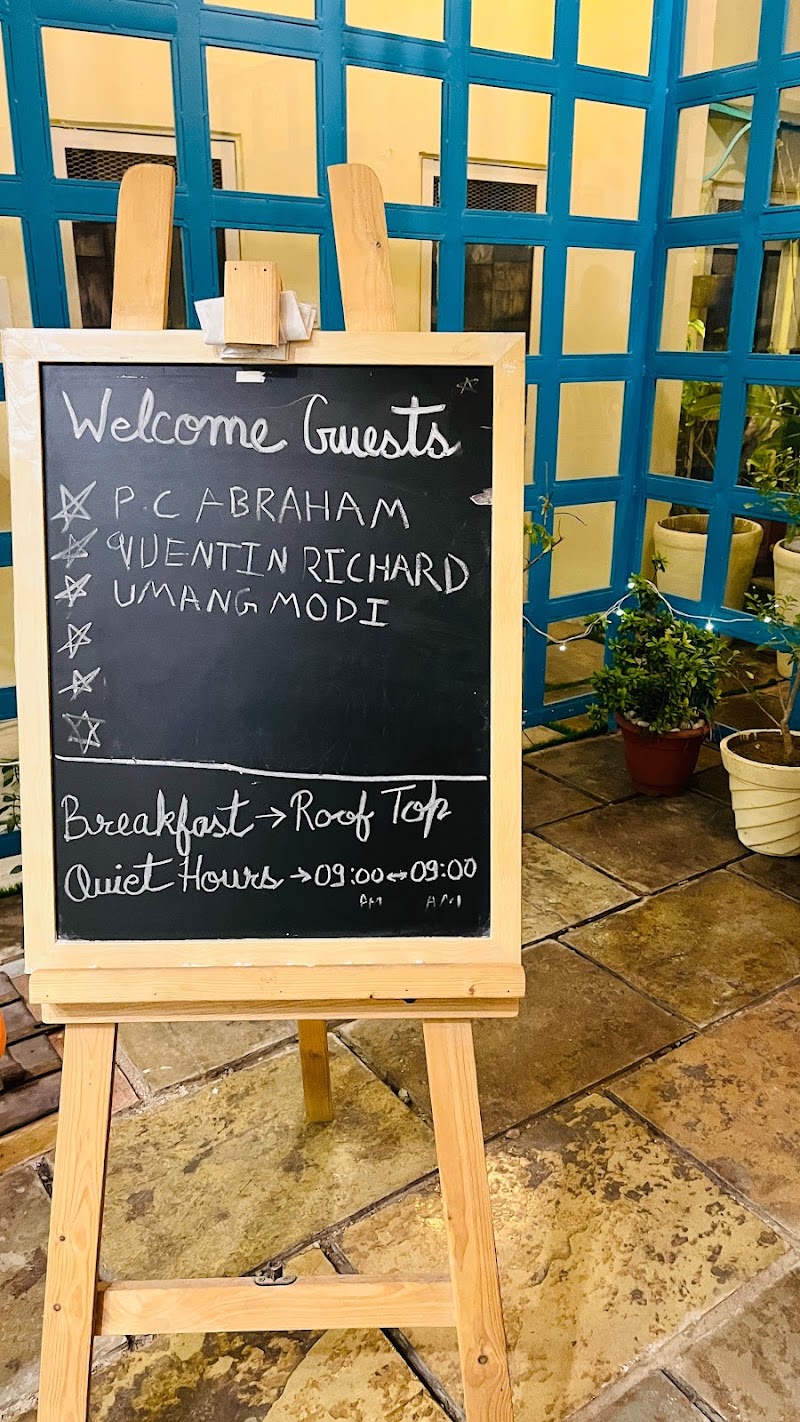 Welcome Guests
P.C ABRAHAM
QUENTIN RICHARD
UMANG MODI
Breakfast → Roof Top
Quiet Hours → 09:00 ↔ 09:00
PM AM